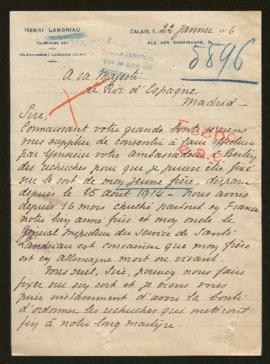 HENRI LANDRIAU
CALAIS, L 22 Janvier 6
TÉLÉPHONE
RUE DES
TÉLÉGRAMMES: LANDRIAU CALAIS
5896
A sa Majesté
le Roi d'Espagne
Madrid
Sire,
Connaissant votre grande bonté, je viens
vous supplier de consentir à faire effectuer
par Monsieur votre Ambassadeur à Berlin
des recherches pour que je puisse être fixé
sur le sort de mon jeune frère, disparu
depuis le 25 août 1914. Nous avons
depuis 16 mois cherché partout en France
notre bien aimé frère et mon oncle le
général Inspecteur du Service de Santé
Landriau est convaincu que mon frère
est en Allemagne mort ou vivant.
Vous seul, Sire, pouvez nous faire
fixer sur son sort et je viens vous
prier instamment d'avoir la bonté
d'ordonner les recherches qui mettront
fin à notre long martyre.